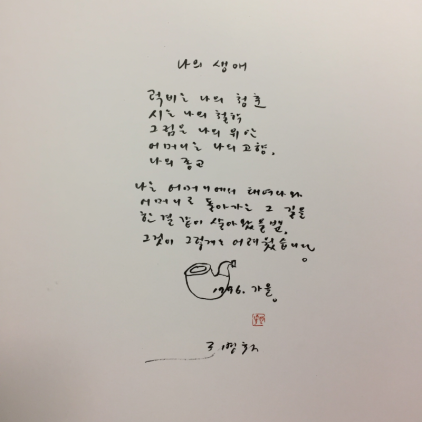 나의 생애
럭비는 나의 청춘
시는 나의 철학
그림은 나의 위안
어머니는 나의 고향,
나의 종교
나는 어머니에서 태어나와
어머니로 돌아가는 그 길을
한결같이 살아왔을 뿐,
그것이 그렇게도 어려웠습니다.
1996. 가을.
조병화